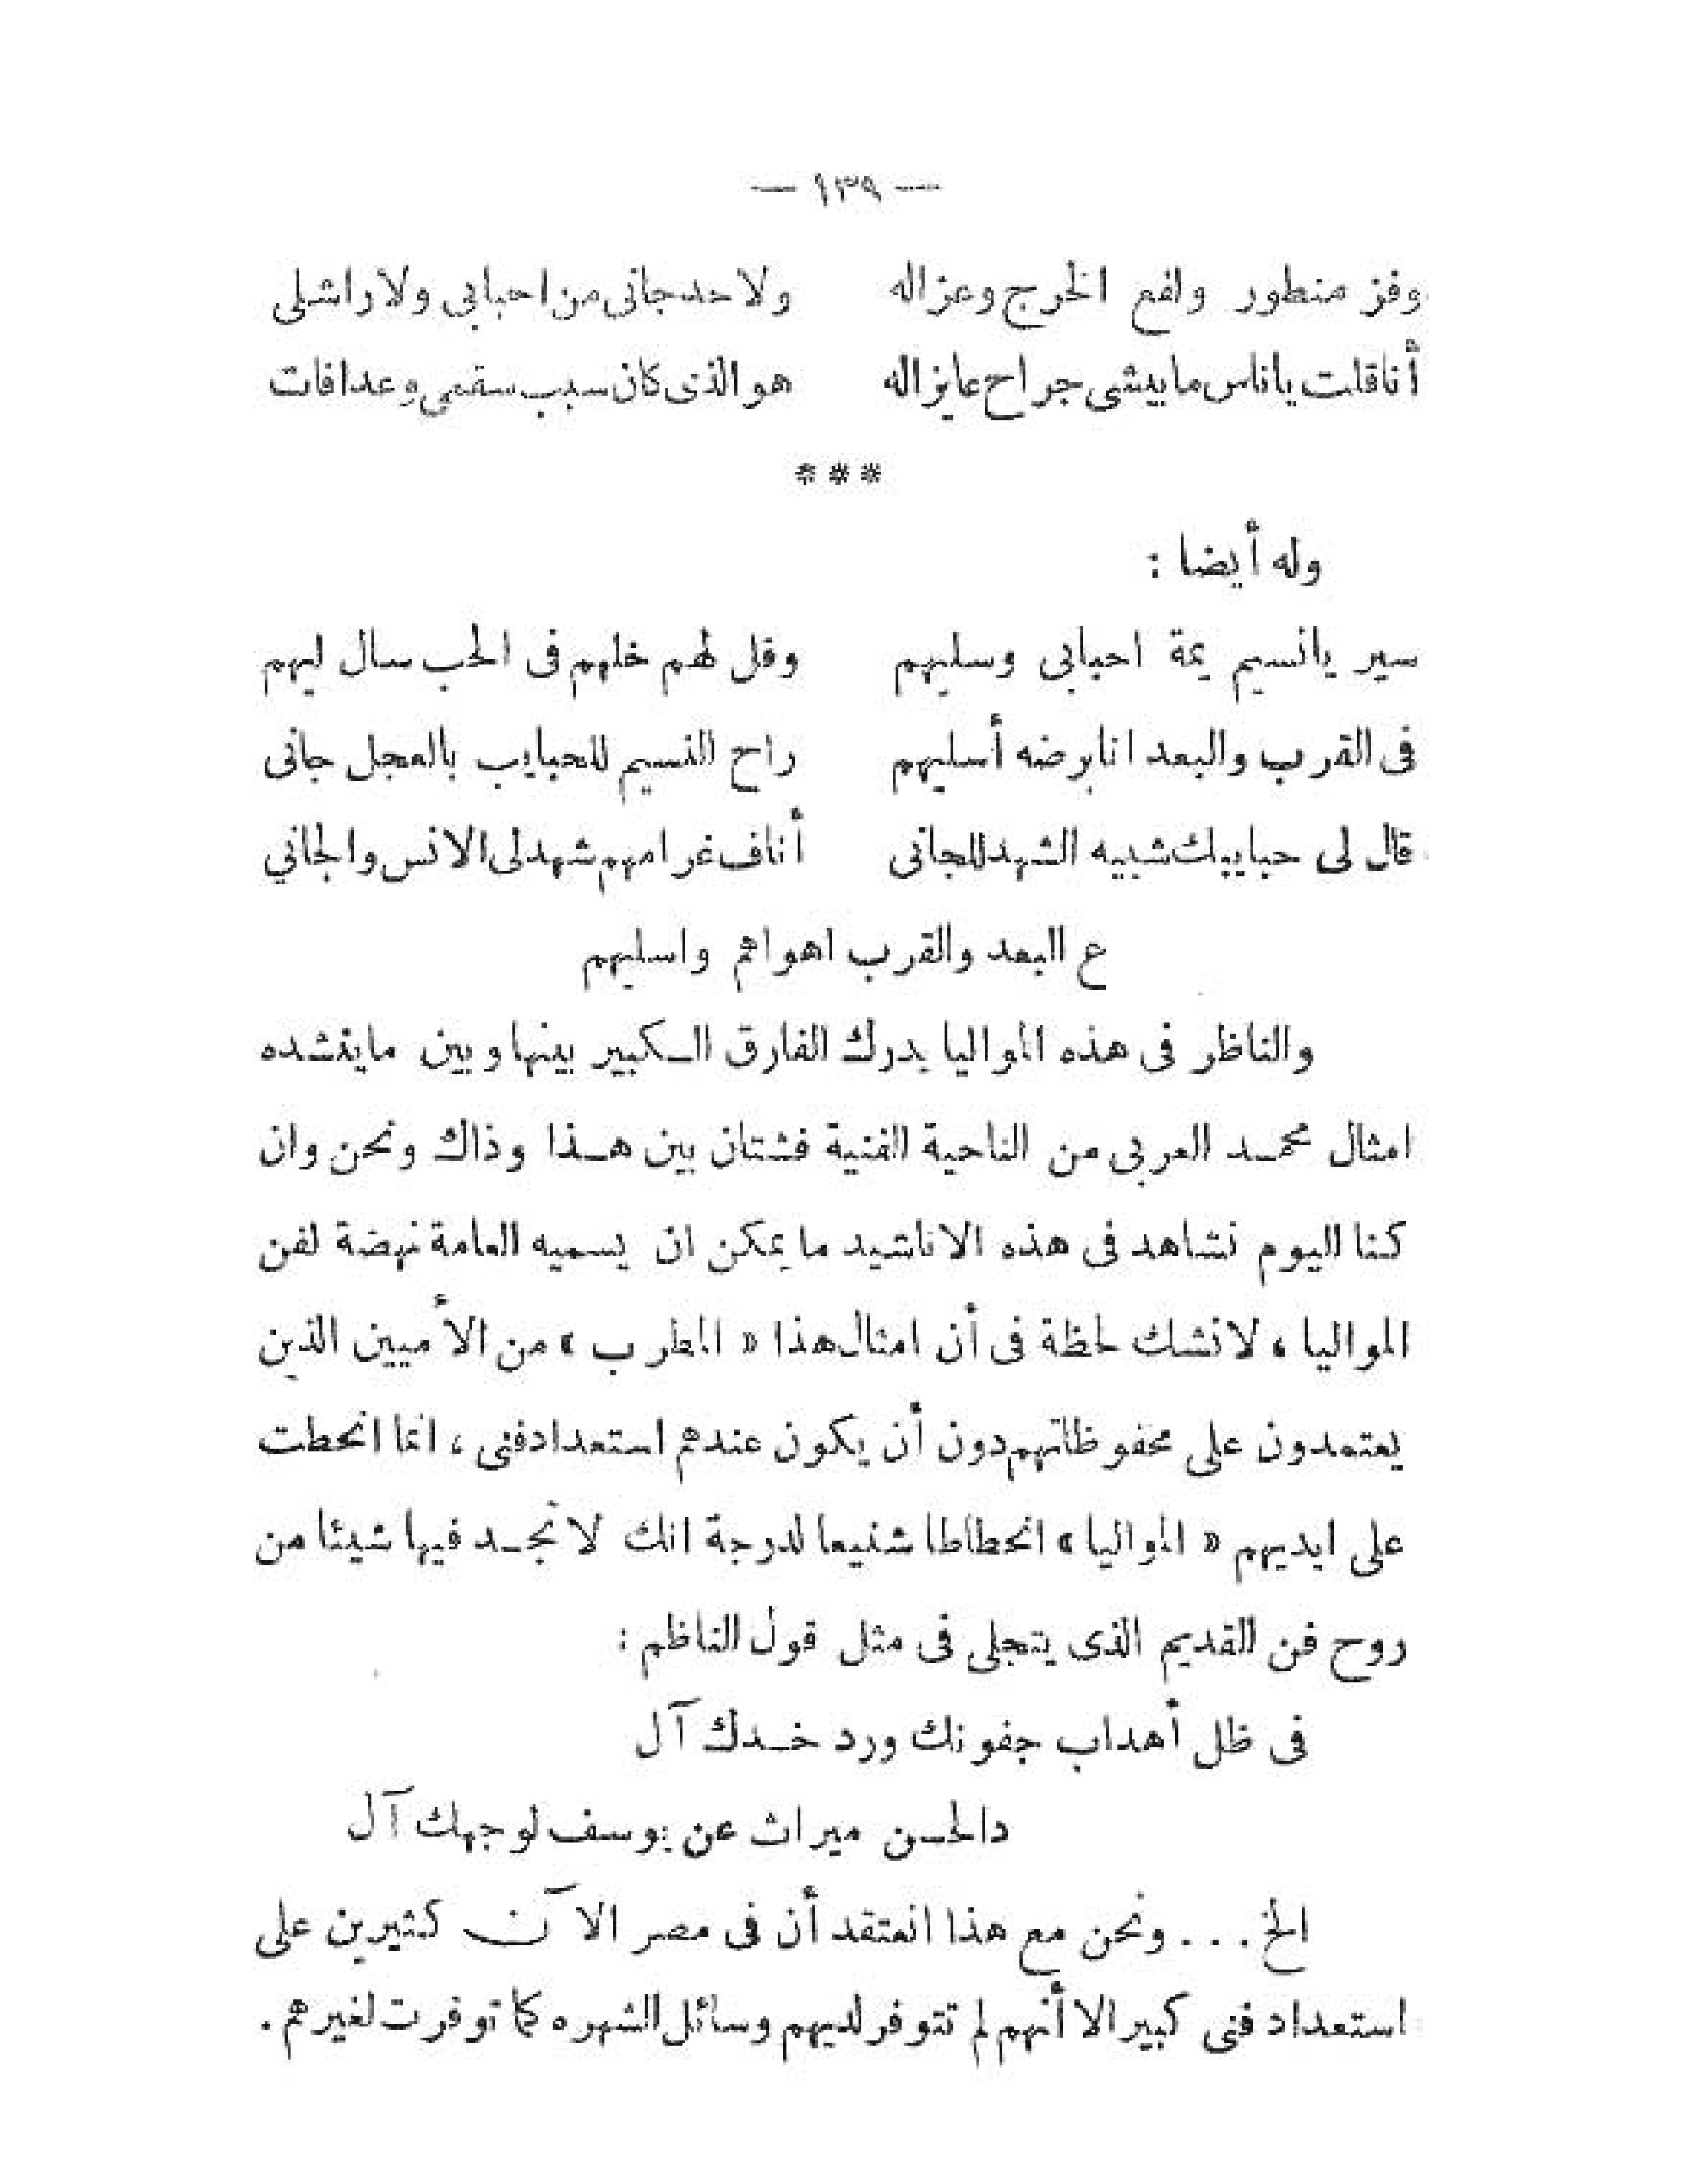 — ١٣٩ —
وفز منطور وافع الخرج وعزاله ولا حد جانى من احبابى ولا راشلى
أنا قلت ياناس ما بيشى جراح عايزاله هو الذى كان سبب سقمى وعدا فات
***
وله أيضا :
سير يانسيم يمة احبابى وسليهم وقل لهم خلهم فى الحب سال ليهم
فى القرب والبعد انا برضه أسليهم راح النسيم للحبايب بالعجل جانى
قال لى حبايبك شبيه الشهد للجانى أنا ف غرامهم شهد لى الانس والجاني
ع البعد والقرب اهواهم واسليهم
والناظر فى هذه المواليا يدرك الفارق الكبير بينها وبين ماينشده
امثال محمد العربى من الناحية الفنية فشتان بين هذا وذاك ونحن وان
كنا اليوم نشاهد فى هذه الاناشيد ما يمكن ان يسميه العامة نهضة لفن
المواليا ، لانشك لحظة فى أن امثال هذا « المطرب » من الأميين الذين
يعتمدون على محفوظاتهم دون أن يكون عندهم استعداد فنى ، انما انحطت
على ايديهم « المواليا » انحطاطا شنيعا لدرجة انك لا تجد فيها شيئا من
روح فن القديم الذى يتجلى فى مثل قول الناظم :
فى ظل أهداب جفونك ورد خدك آل
دالحسن ميراث عن يوسف لوجهك آل
الخ . . . ونحن مع هذا انعتقد أن فى مصر الآن كثيرين على
استعداد فنى كبير الا أنهم لم تتوفر لديهم وسائل الشهره كما توفرت لغيرهم .